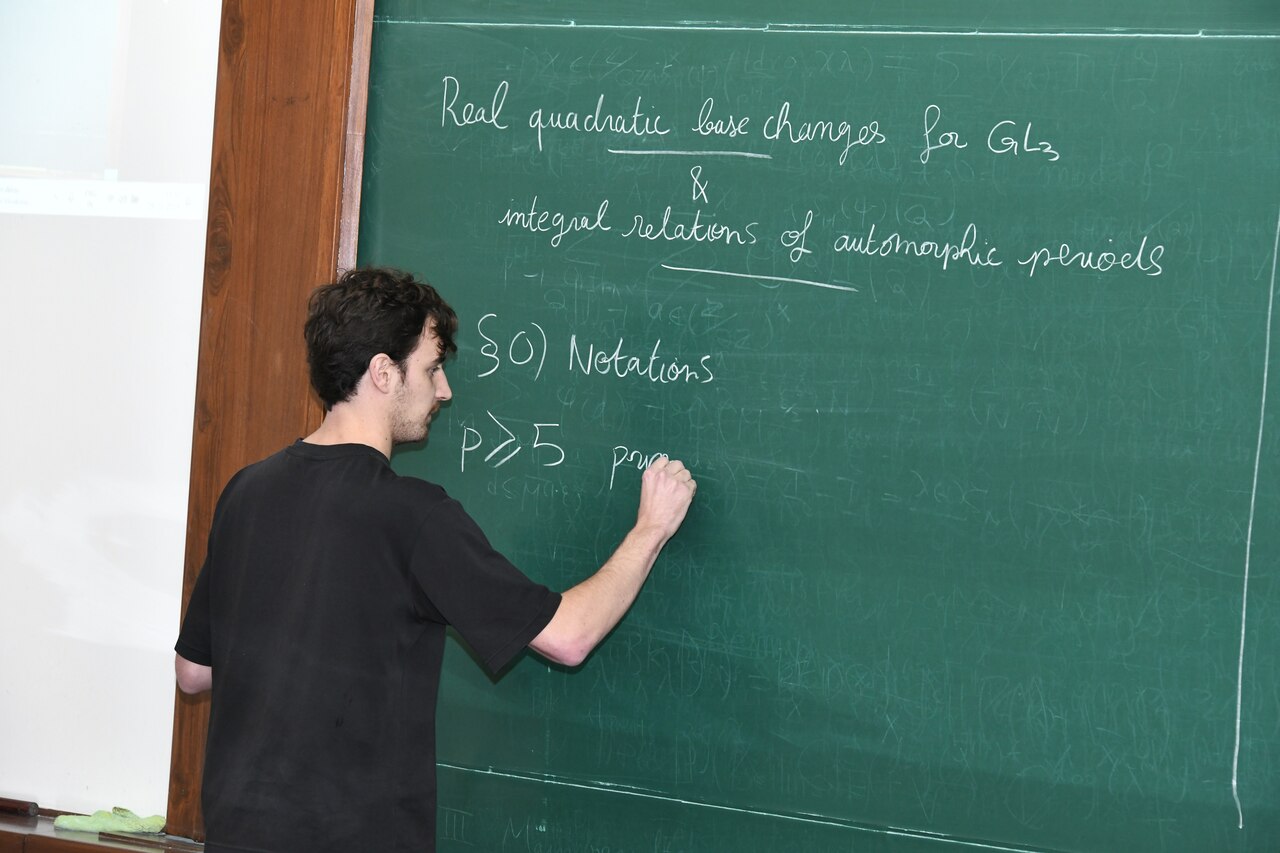 Real quadratic base changes for GL3
&
integral relations of automorphic periods
§0) Notations
p⩾5 prim